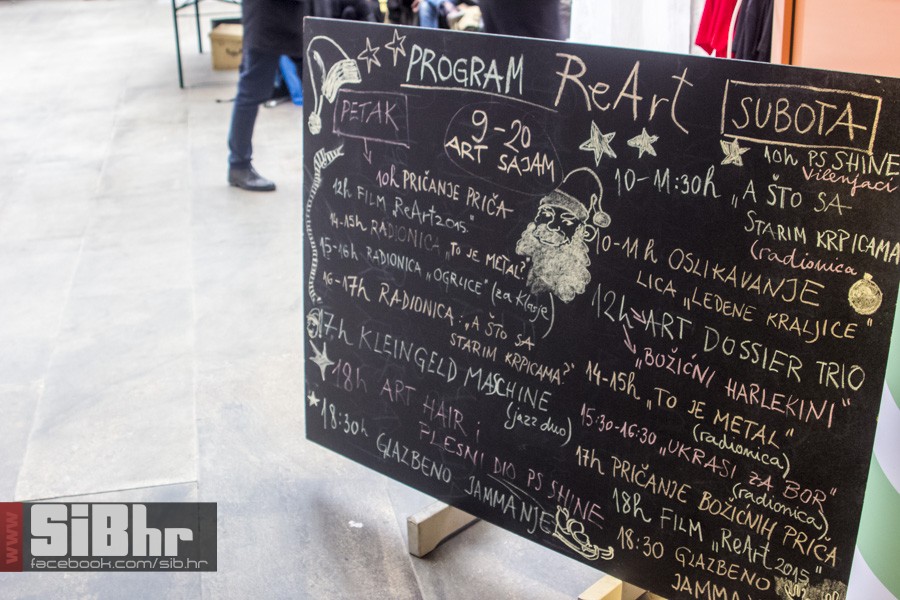 PROGRAM ReArt
PETAK
9-20
ART SAJAM
10h PRIČANJE PRIČA
12h FILM ReArt2015"
14-15h RADIONICA „TO JE METAL?
15-16h RADIONICA „OGRLICE" (za klasje)
16-17h RADIONICA: „A ŠTO SA
STARIM KRPICAMA?"
17h KLEINGELD MASCHINE
(jazz duo)
18h ART HAIR i
PLESNI DIO PS SHINE
18:30h GLAZBENO JAMMANJE
SUBOTA
10h PS SHINE
Vilenjaci
10-11:30h „A ŠTO SA
STARIM KRPICAMA
(radionica
10-11h OSLIKAVANJE
LICA „LEDENE KRALJICE"
12h ART DOSSIER TRIO
„BOŽIĆNI HARLEKINI"
14-15h „TO JE METAL"
(radionica)
15:30-16:30 „UKRASI ZA BOR"
(radionica)
17h PRIČANJE BOŽIĆNIH PRIČA
18h FILM „ReArt 2015"
18:30 GLAZBENO
JAMMAN
www SiBhr
facebook.com/sib.hr